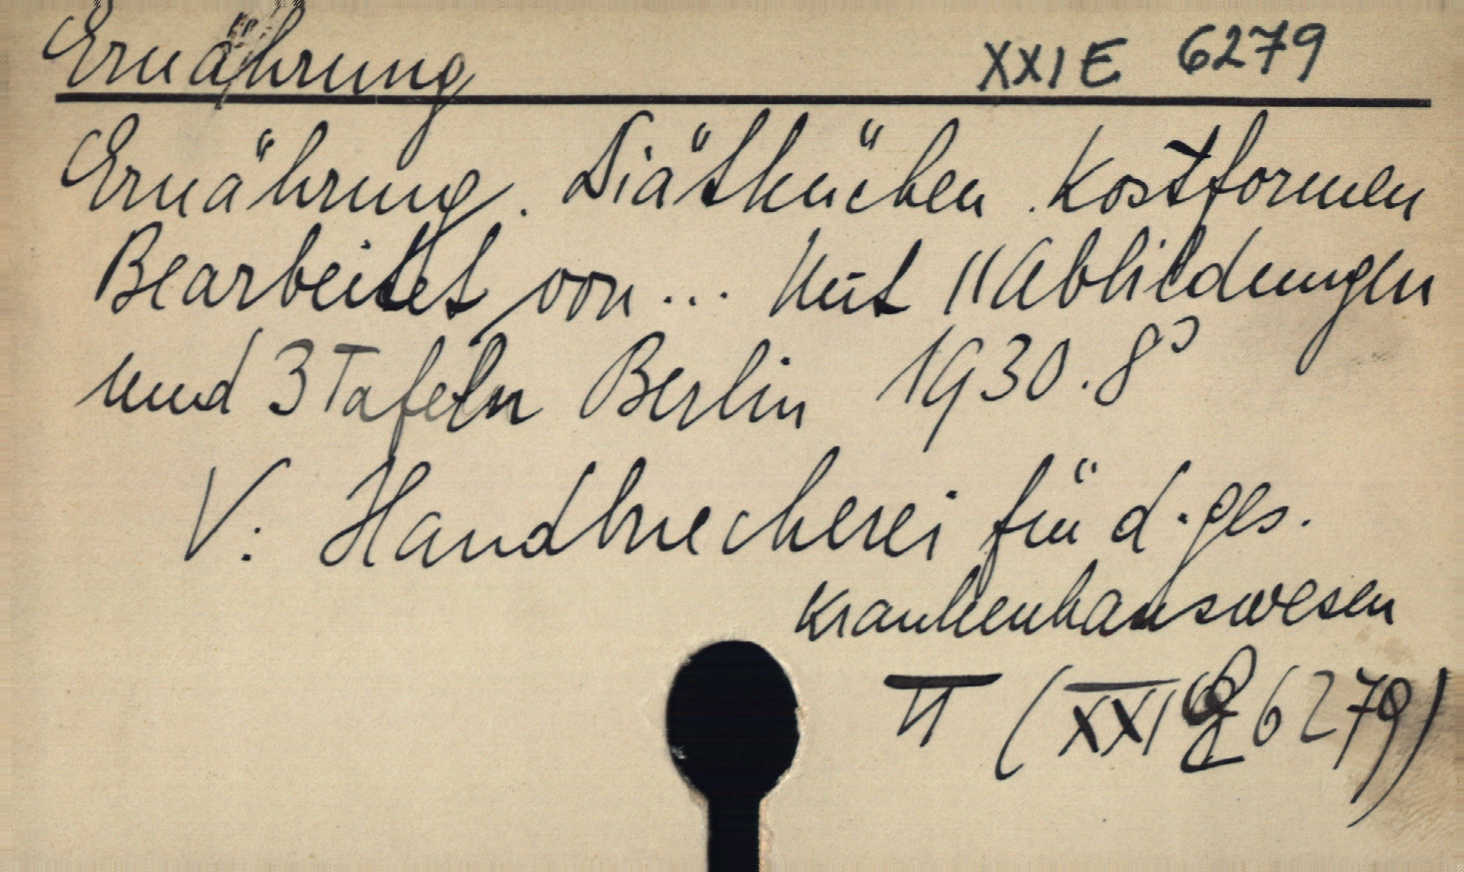 Ernährung XXI E 6279
Ernährung. Diätküchen. Kostformen
Bearbeitet von... Mit 11 Abbildungen
und 3 Tafeln Berlin 1930. 8°
V: Handbuecherei für d. ges.
Krankenhauswesen
II (XXI E 6279)